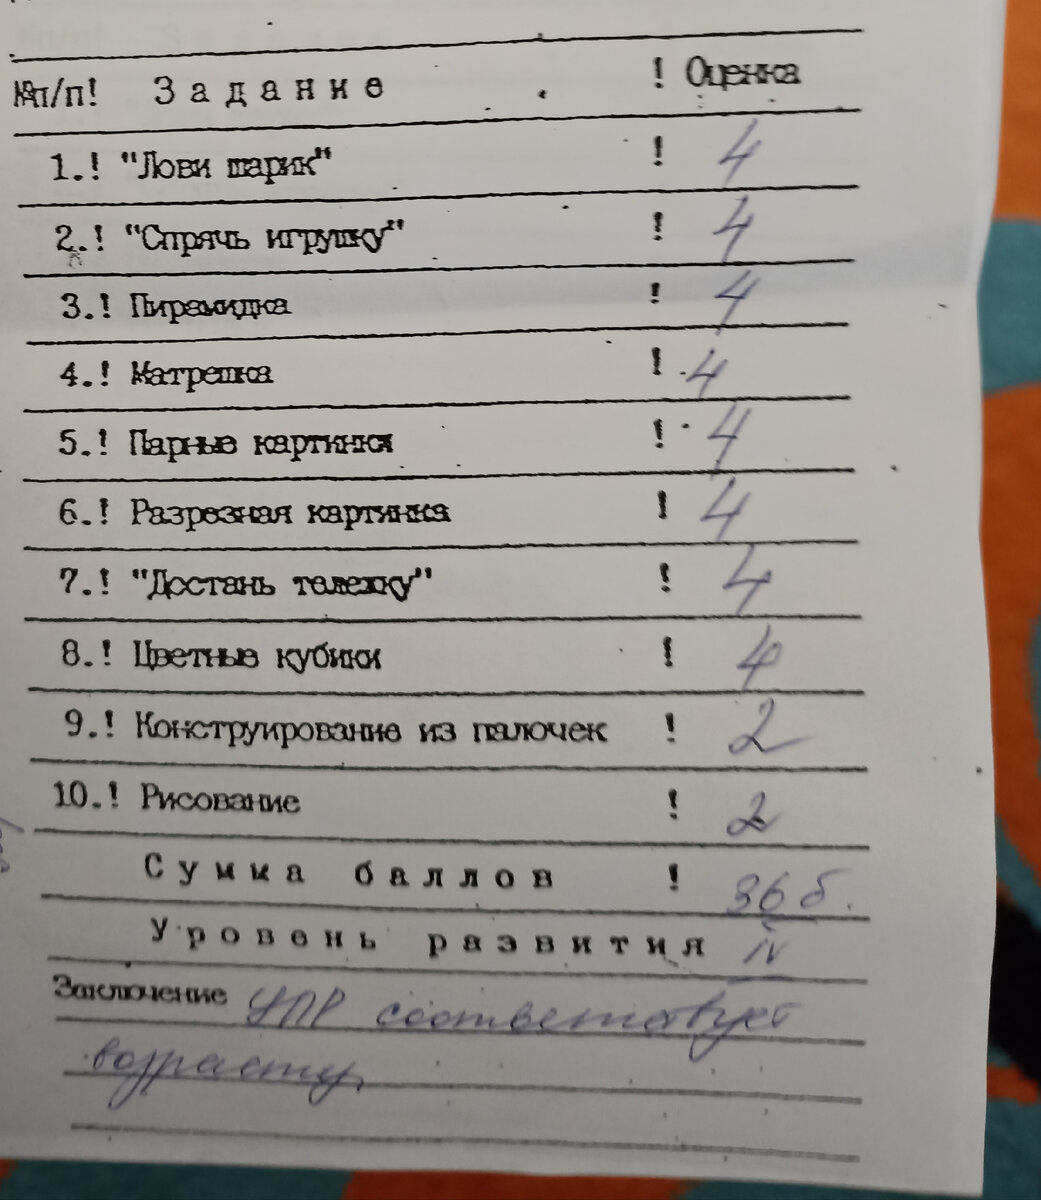 №п/п! Задание ! Оценка
1.! "Лови шарик" ! 4
2.! "Спрячь игрушку" ! 4
3.! Пирамидка ! 4
4.! Матрешка ! 4
5.! Парные картинки ! 4
6.! Разрезная картинка ! 4
7.! "Достань тележку" ! 4
8.! Цветные кубики ! 4
9.! Конструирование из палочек ! 2
10.! Рисование ! 2
Сумма баллов ! 36 б.
Уровень развития IV
Заключение УПР соответствует
возрасту